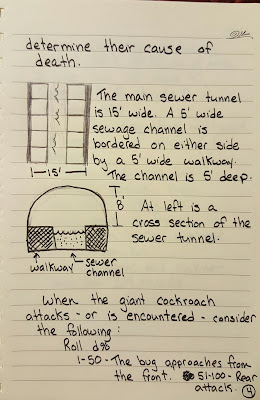 determine their cause of
death.
The main sewer tunnel
is 15' wide. A 5' wide
sewage channel is
bordered on either side
by a 5' wide walkway.
The channel is 5' deep.
15'
8'
At left is a
cross section of the
sewer tunnel.
walkway
sewer
channel
When the giant cockroach
attacks - or is encountered - consider
the following:
Roll d%
1-50 - The bug approaches from
the front. 51-100 - Rear
attack.
4